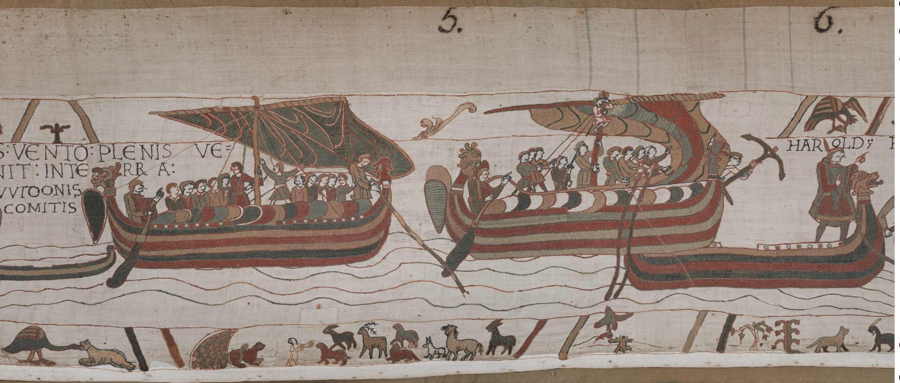 5. 6.
S: VENTO: PLENIS VE:
NIT: INTE RRA:
VVIDONIS
COMITIS
HAROLD: